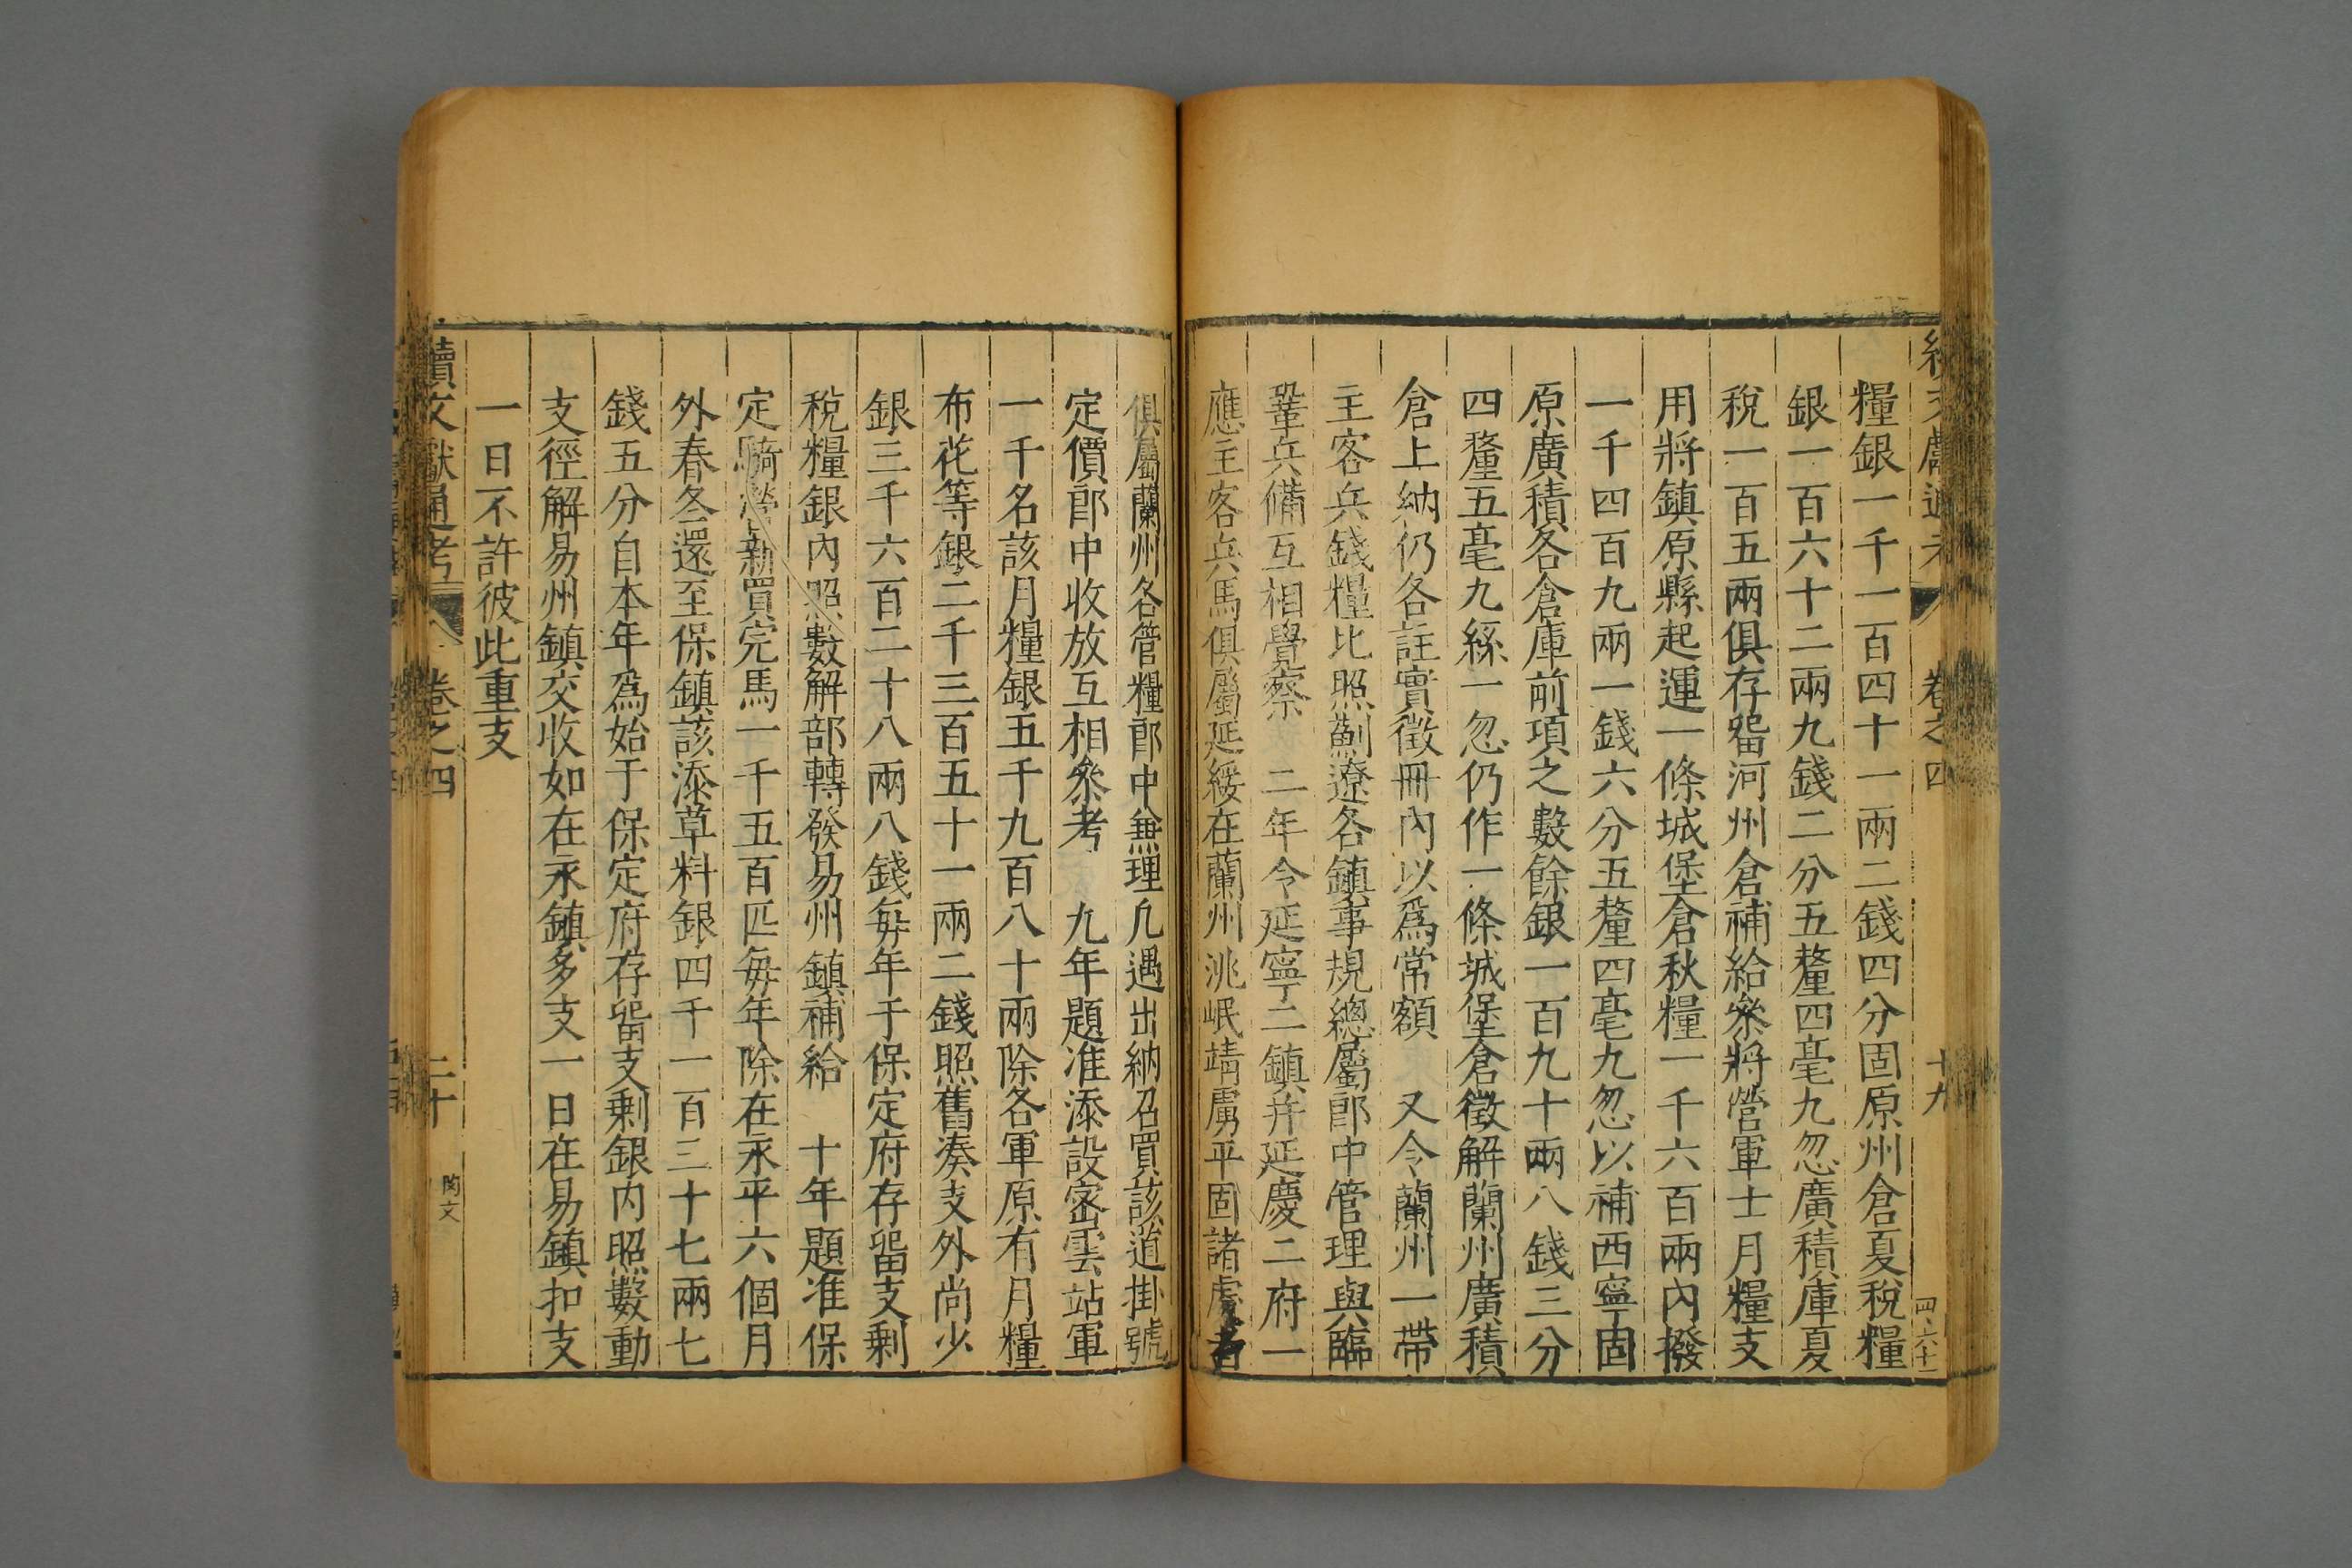 續文獻通考 卷之四 十九
糧銀一千一百四十一兩二錢四分固原州倉夏稅糧
銀一百六十二兩九錢二分五釐四毫九忽廣積庫夏
稅一百五兩俱存畱河州倉補給叅將營軍士月糧支
用將鎮原縣起運一條城堡倉秋糧一千六百兩內撥
一千四百九兩一錢六分五釐四毫九忽以補西寧固
原廣積各倉庫前項之數餘銀一百九十兩八錢三分
四釐五毫九絲一忽仍作一條城堡倉徵解蘭州廣積
倉上納仍各註實徵冊內以爲常額 又令蘭州一帶
主客兵錢糧比照薊遼各鎮事規總屬郎中管理與臨
鞏兵備互相覺察 二年令延寧二鎮并延慶二府一
應主客兵馬俱屬延綏在蘭州洮岷靖虜平固諸處者
俱屬蘭州各管糧郎中兼理凡遇出納召買該道掛號
定價郎中收放互相叅考 九年題准添設密雲站軍
一千名該月糧銀五千九百八十兩除各軍原有月糧
布花等銀二千三百五十一兩二錢照舊湊支外尚少
銀三千六百二十八兩八錢每年于保定府存畱支剩
稅糧銀內照數解部轉發易州鎮補給 十年題准保
定騎營新買完馬一千五百匹每年除在永平六個月
外春冬還至保鎮該添草料銀四千一百三十七兩七
錢五分自本年爲始于保定府存畱支剩銀內照數動
支徑解易州鎮交收如在永鎮多支一日在易鎮扣支
一日不許彼此重支
續文獻通考 卷之四 二十 陶文